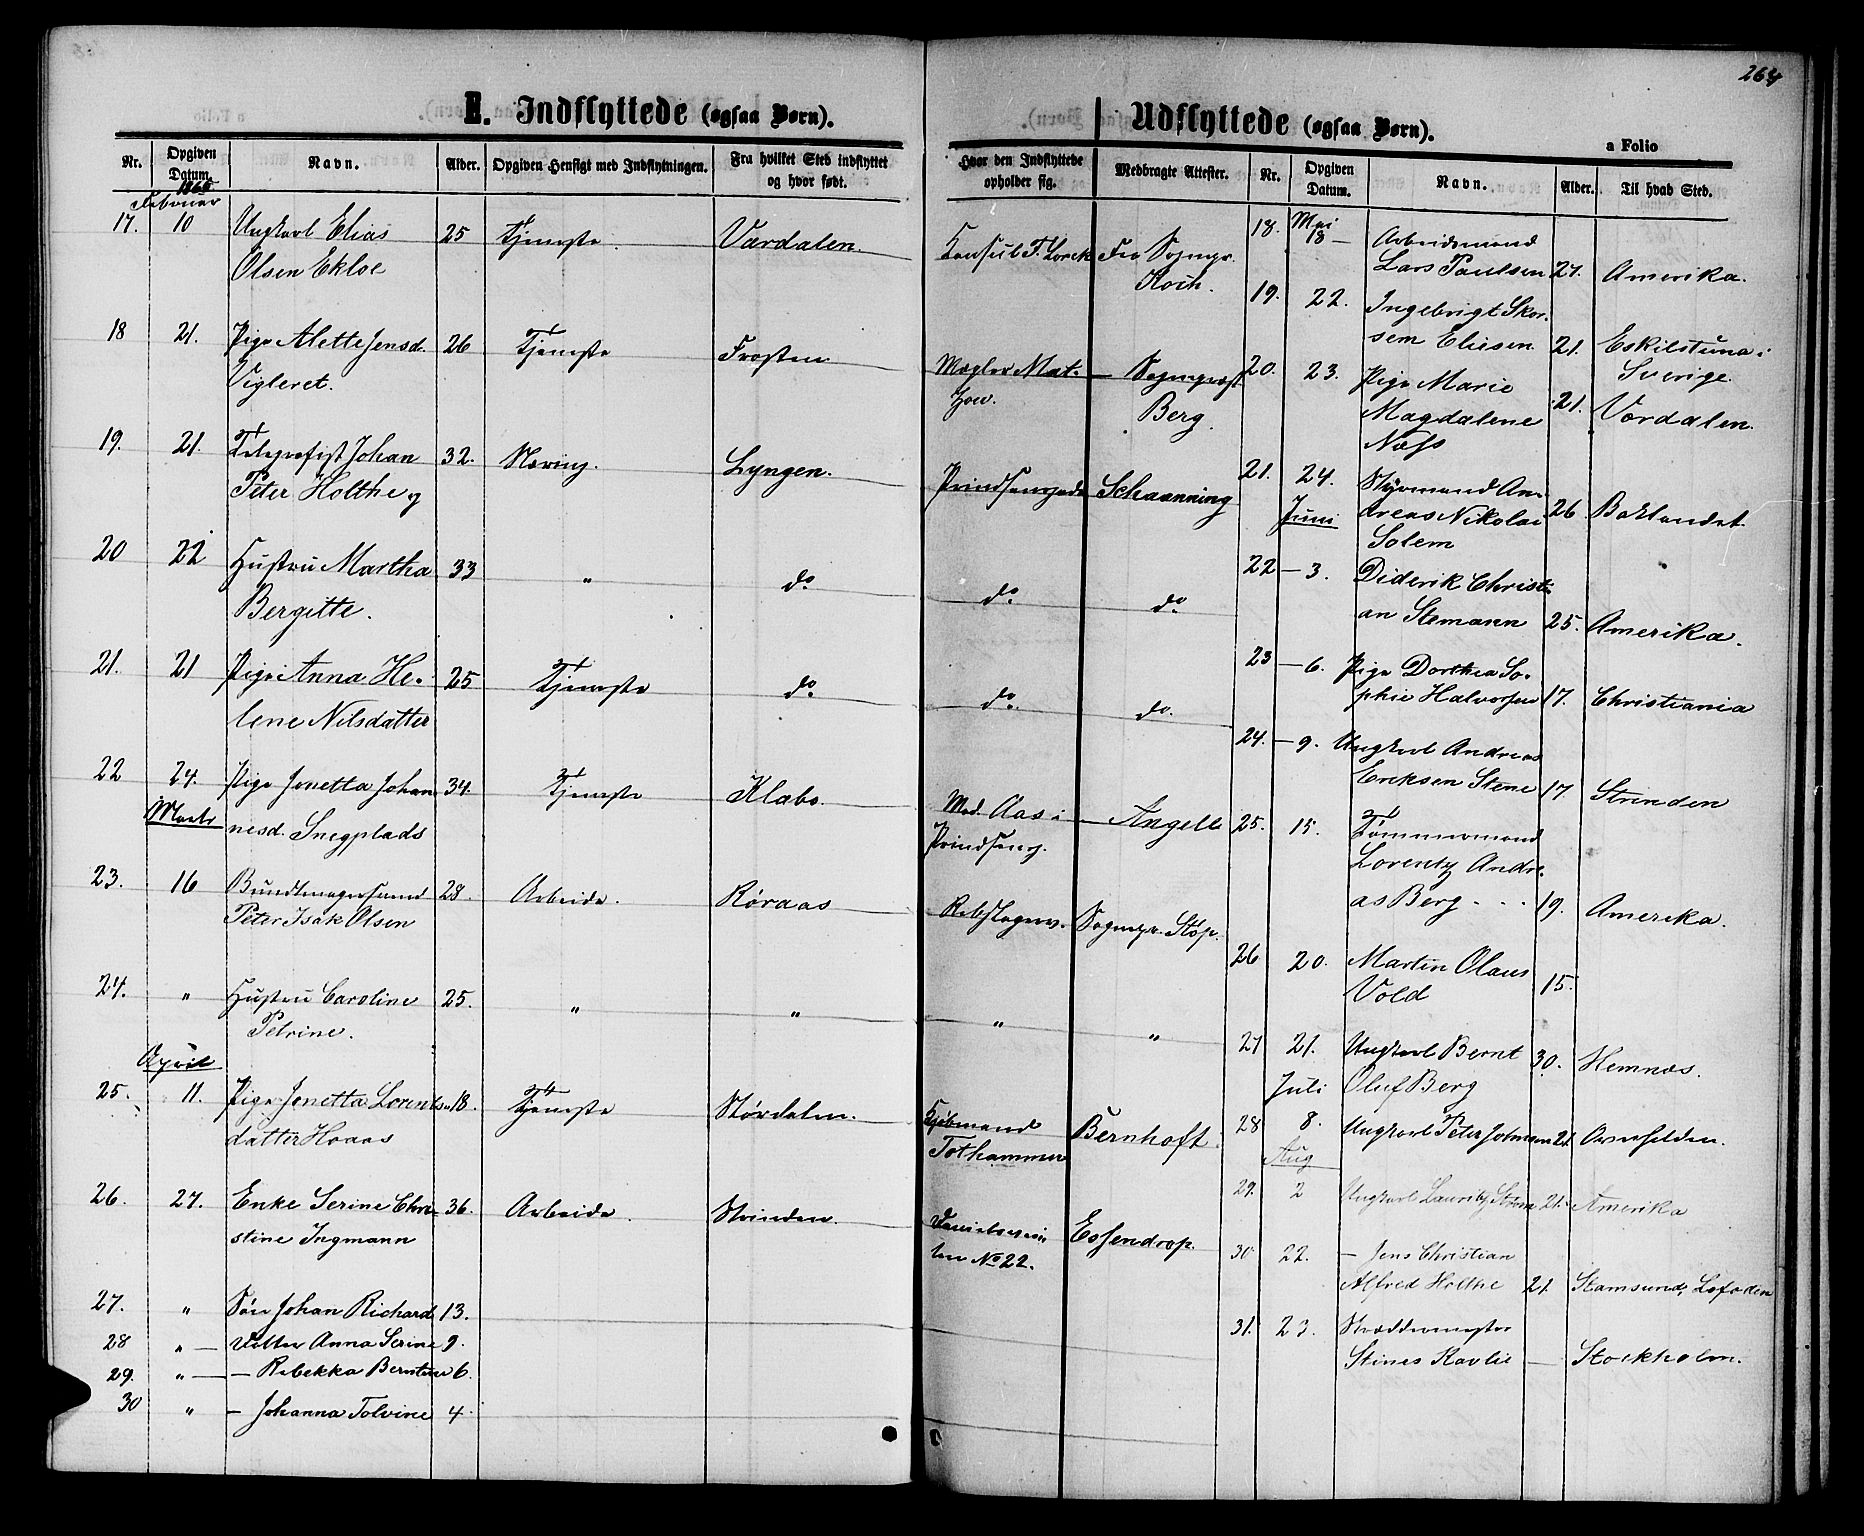 264
E. Indflyttede (ogsaa Børn).
Nr. Opgiven Datum. Navn. Alder. Opgiven Hensigt med Indflytningen. Fra hvilket Sted indflyttet og hvor født. Hvor den Indflyttede opholder sig. Medbragte Attester.
Februar
17. 10 Ungkarl Elias 25 Tjeneste. Værdalen. Konsul F. Lorck Fra Sognepr.
Olsen Ekloe Koch.
18 21. Pige Alette Jensd. 26 Tjeneste Frosten Mægler Mat- — Sognepræst
Vigleret. zow. Berg.
19. 21. Telegrafist Johan 32. Næring. Lyngen. Prindsensgade Schaanning
Peter Holthe
20 22 Hustru Martha 33 " do do do
Bergitte.
21. 21 Pige Anna He- 25 Tjeneste do do do.
lene Nilsdatter
22 24. Pige Jonetta Johan 34. Tjeneste Klæbo. Mad. Aas i — Angell
Marts nesd. Snegplads Prindseng.
23. 16 Bundtmagersvend 28. Arbeide. Røraas Rebslagerv. Sognepr. Støp.
Peter Isak Olsen
24. " Hustru Caroline 25. " " " "
Petrine.
April
25. 11. Pige Jonetta Lorents- 18. Tjeneste Størdalen. Kjøbmand Bernhoft.
datter Hoaas Tothammer
26. 27. Enke Serine Chri- 36. Arbeide. Strinden. Essendrop.
stine Ingmann No 22.
27. " Søn Johan Richard 13.
28 " — Datter Anna Serine 9.
29. " — — Rebekka Berntine 6.
30 " — Johanna Tolvine 4.
Udflyttede (ogsaa Børn).
a Folio
Nr. Opgiven Datum. Navn. Alder. Til hvad Sted.
Mai
18. 18 — Arbeidsmand
Lars Paulsen 27. Amerika.
19. 22. Ingebrigt Skor-
sem Eliesen 21. Eskilstuna i
Sverige.
20. 23. Pige Marie
Magdalene 21. Værdalen.
Næss
21. 24. Styrmand An-
Juni dreas Nikolai 26. Baklandet
Solem
22 — 3. Diderik Christi-
an Stemann 25. Amerika.
23 — 6. Pige Dorthea So-
phie Halvorsen 17. Christiania
24. — 9. Ungkarl Andreas
Eriksen Stene 17. Strinden
25. 15. Tømmermand
Lorentz Andre-
as Berg - - - 19. Amerika.
26 20. Martin Olaus
Vold 15.
27 21. Ungkarl Bernt 30. Hemnæs.
Juli Oluf Berg
28 8. Ungkarl Peter Johnsen 21. Overhalden.
Aug
29. 2 Ungkarl Lauritz Strøm 21. Amerika
30 22. — Jens Christian
Alfred Holthe 21. Stamsund, Lofoden
31. 23. Skræddermester
Stines Kavlie — Stockholm.